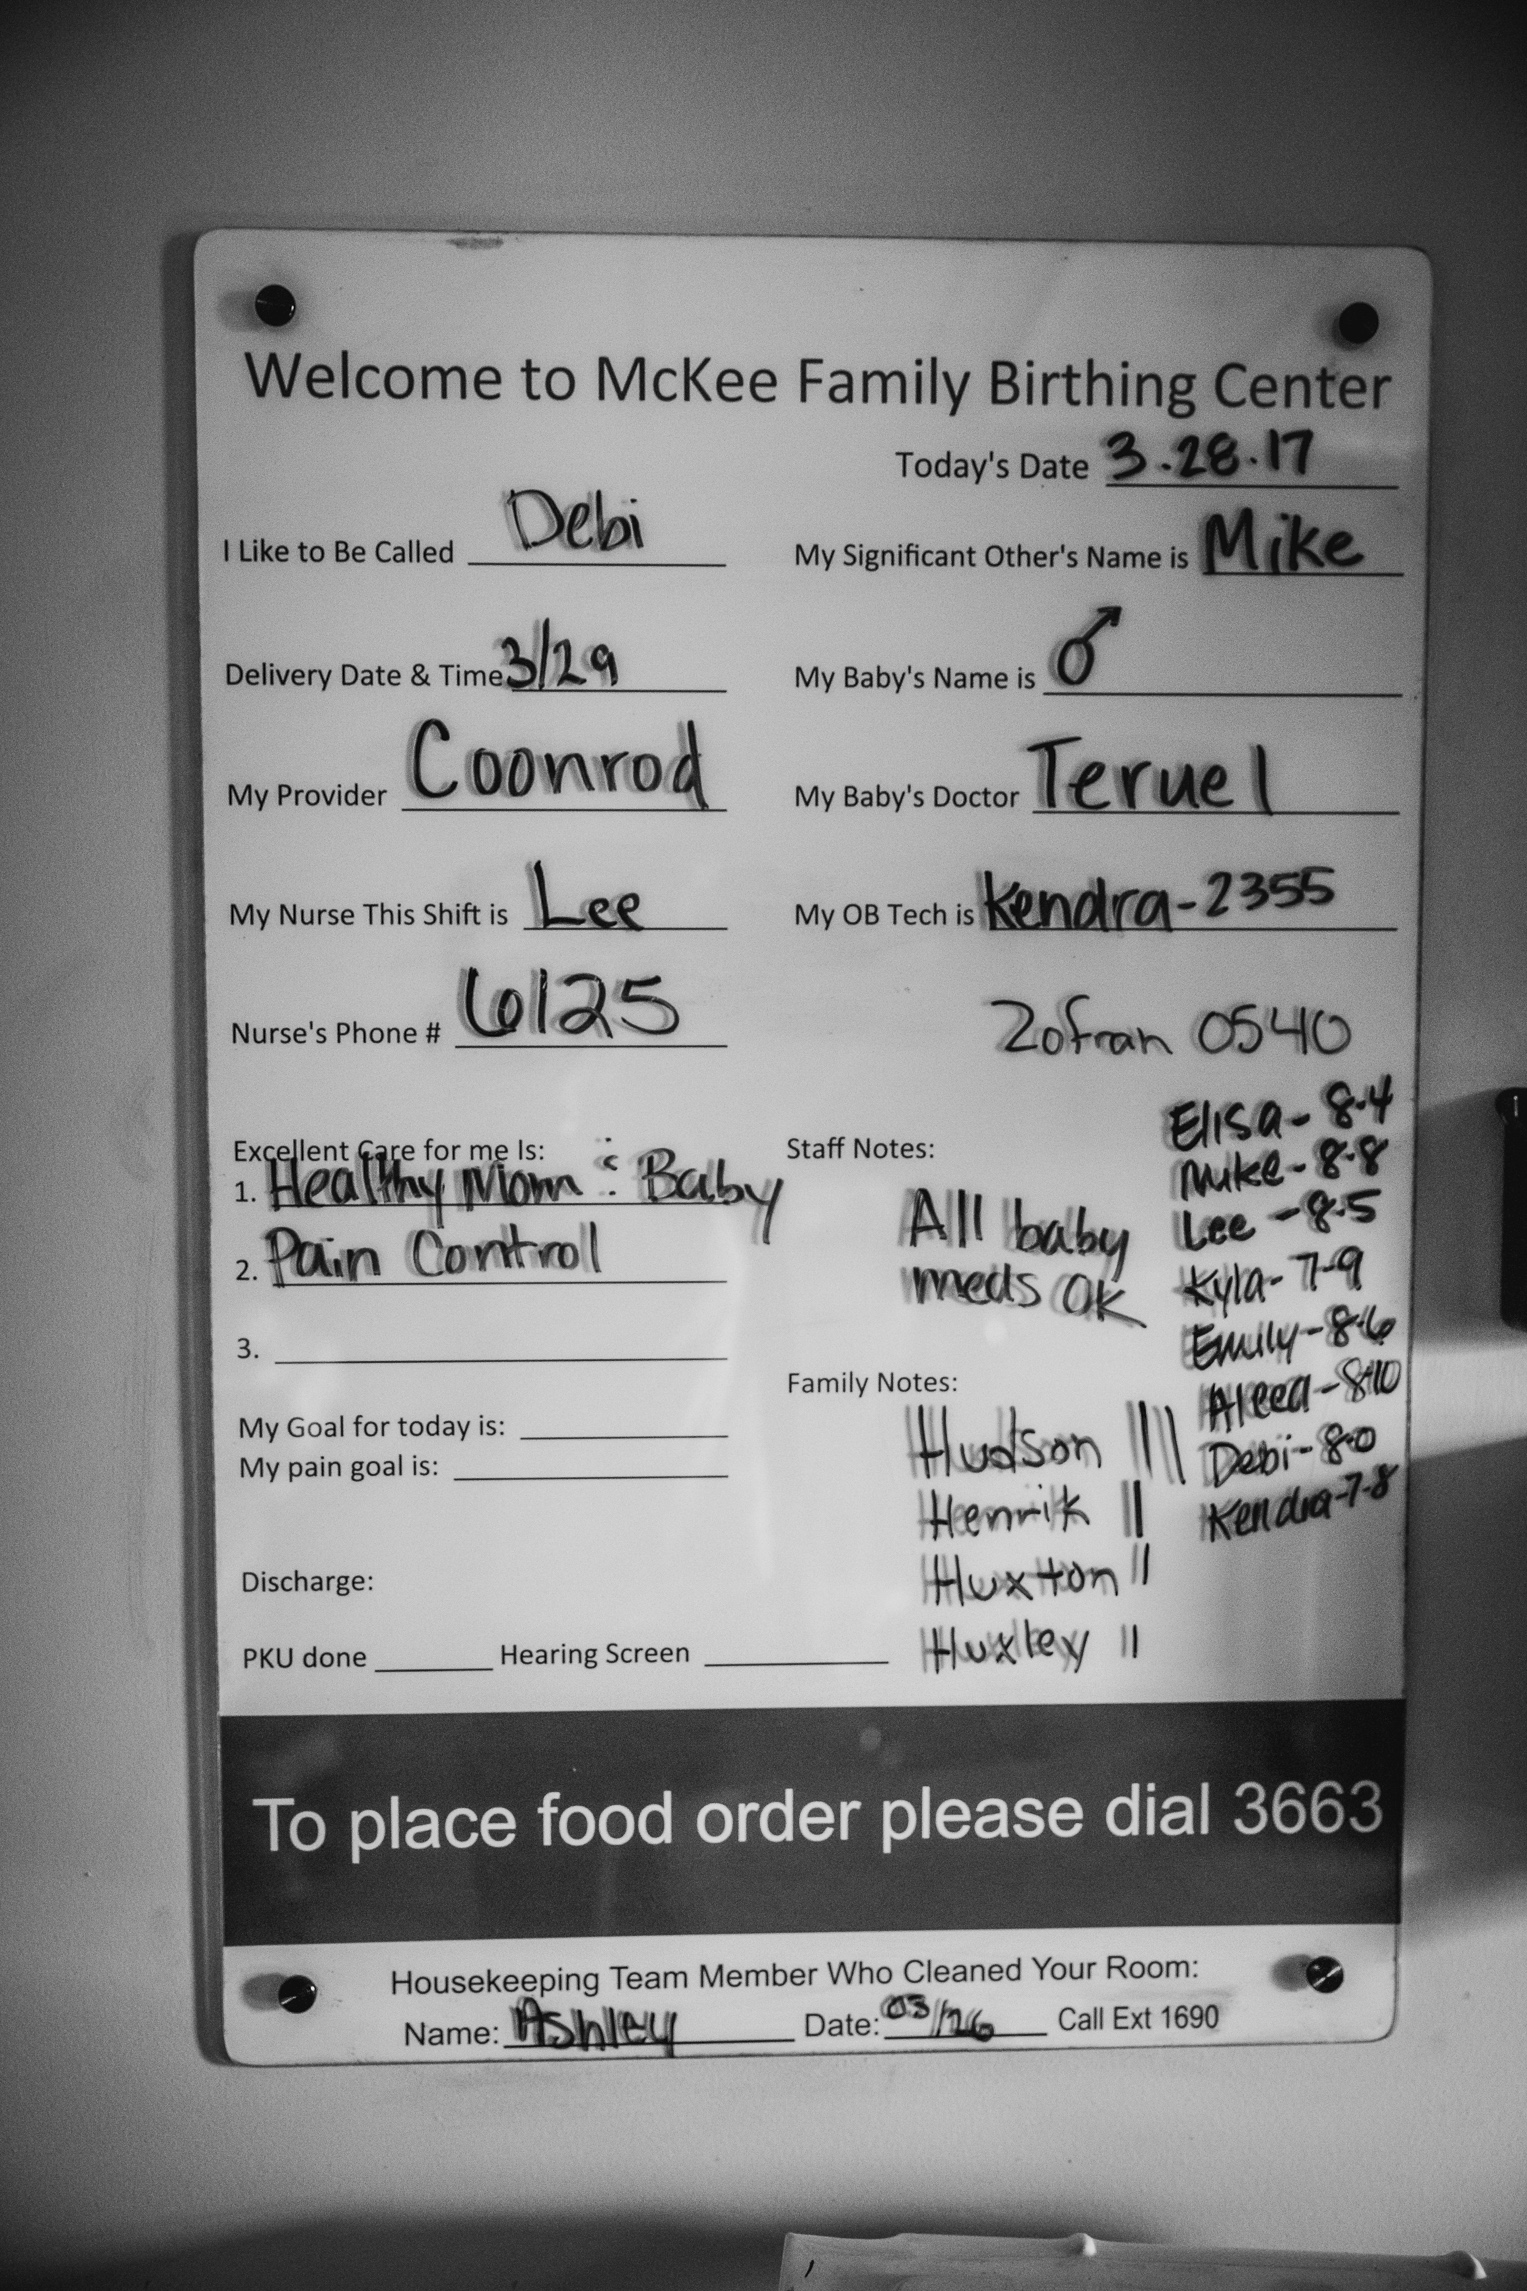 Welcome to McKee Family Birthing Center
Today's Date 3.28.17
I Like to Be Called Debi
My Significant Other's Name is Mike
Delivery Date & Time 3/29
My Baby's Name is ♂
My Provider Coonrod
My Baby's Doctor Teruel
My Nurse This Shift is Lee
My OB Tech is Kendra-2355
Nurse's Phone # 6125
Zofran 0540
Excellent Care for me Is:
1. Healthy Mom & Baby
2. Pain Control
3.
My Goal for today is:
My pain goal is:
Discharge:
PKU done Hearing Screen
Staff Notes:
All baby
meds OK
Elisa- 8.4
Mike- 8.8
Lee -8.5
Kyla- 7-9
Emily-8.6
Aleea-8.10
Debi-8.0
Kendra-7-8
Family Notes:
Hudson |||
Henrik ||
Huxton ||
Huxley ||
To place food order please dial 3663
Housekeeping Team Member Who Cleaned Your Room:
Name: Ashley Date: 03/26 Call Ext 1690